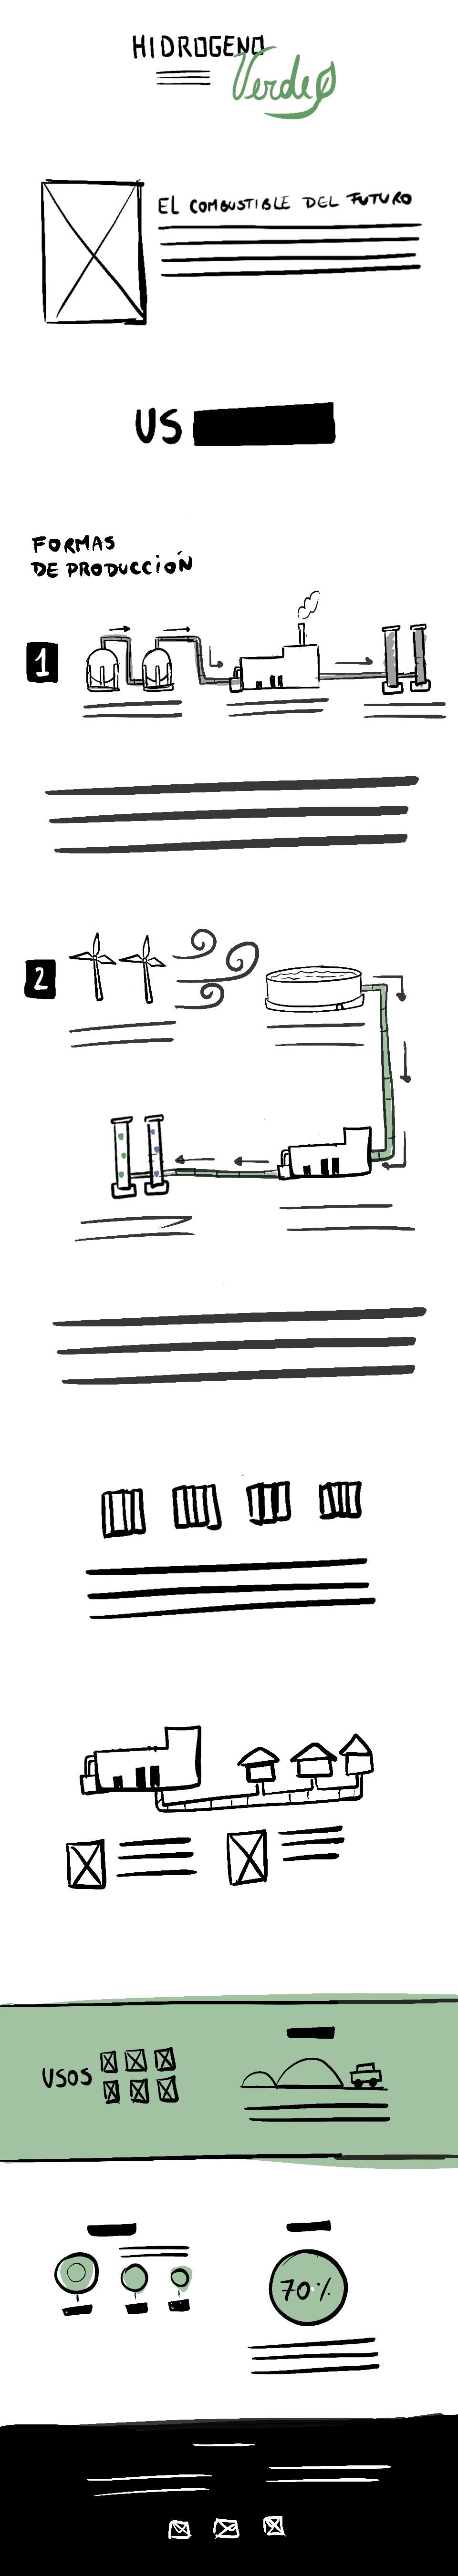 HIDROGENO
Verde
EL COMBUSTIBLE DEL FUTURO
US
FORMAS
DE PRODUCCIÓN
1
2
USOS
70%